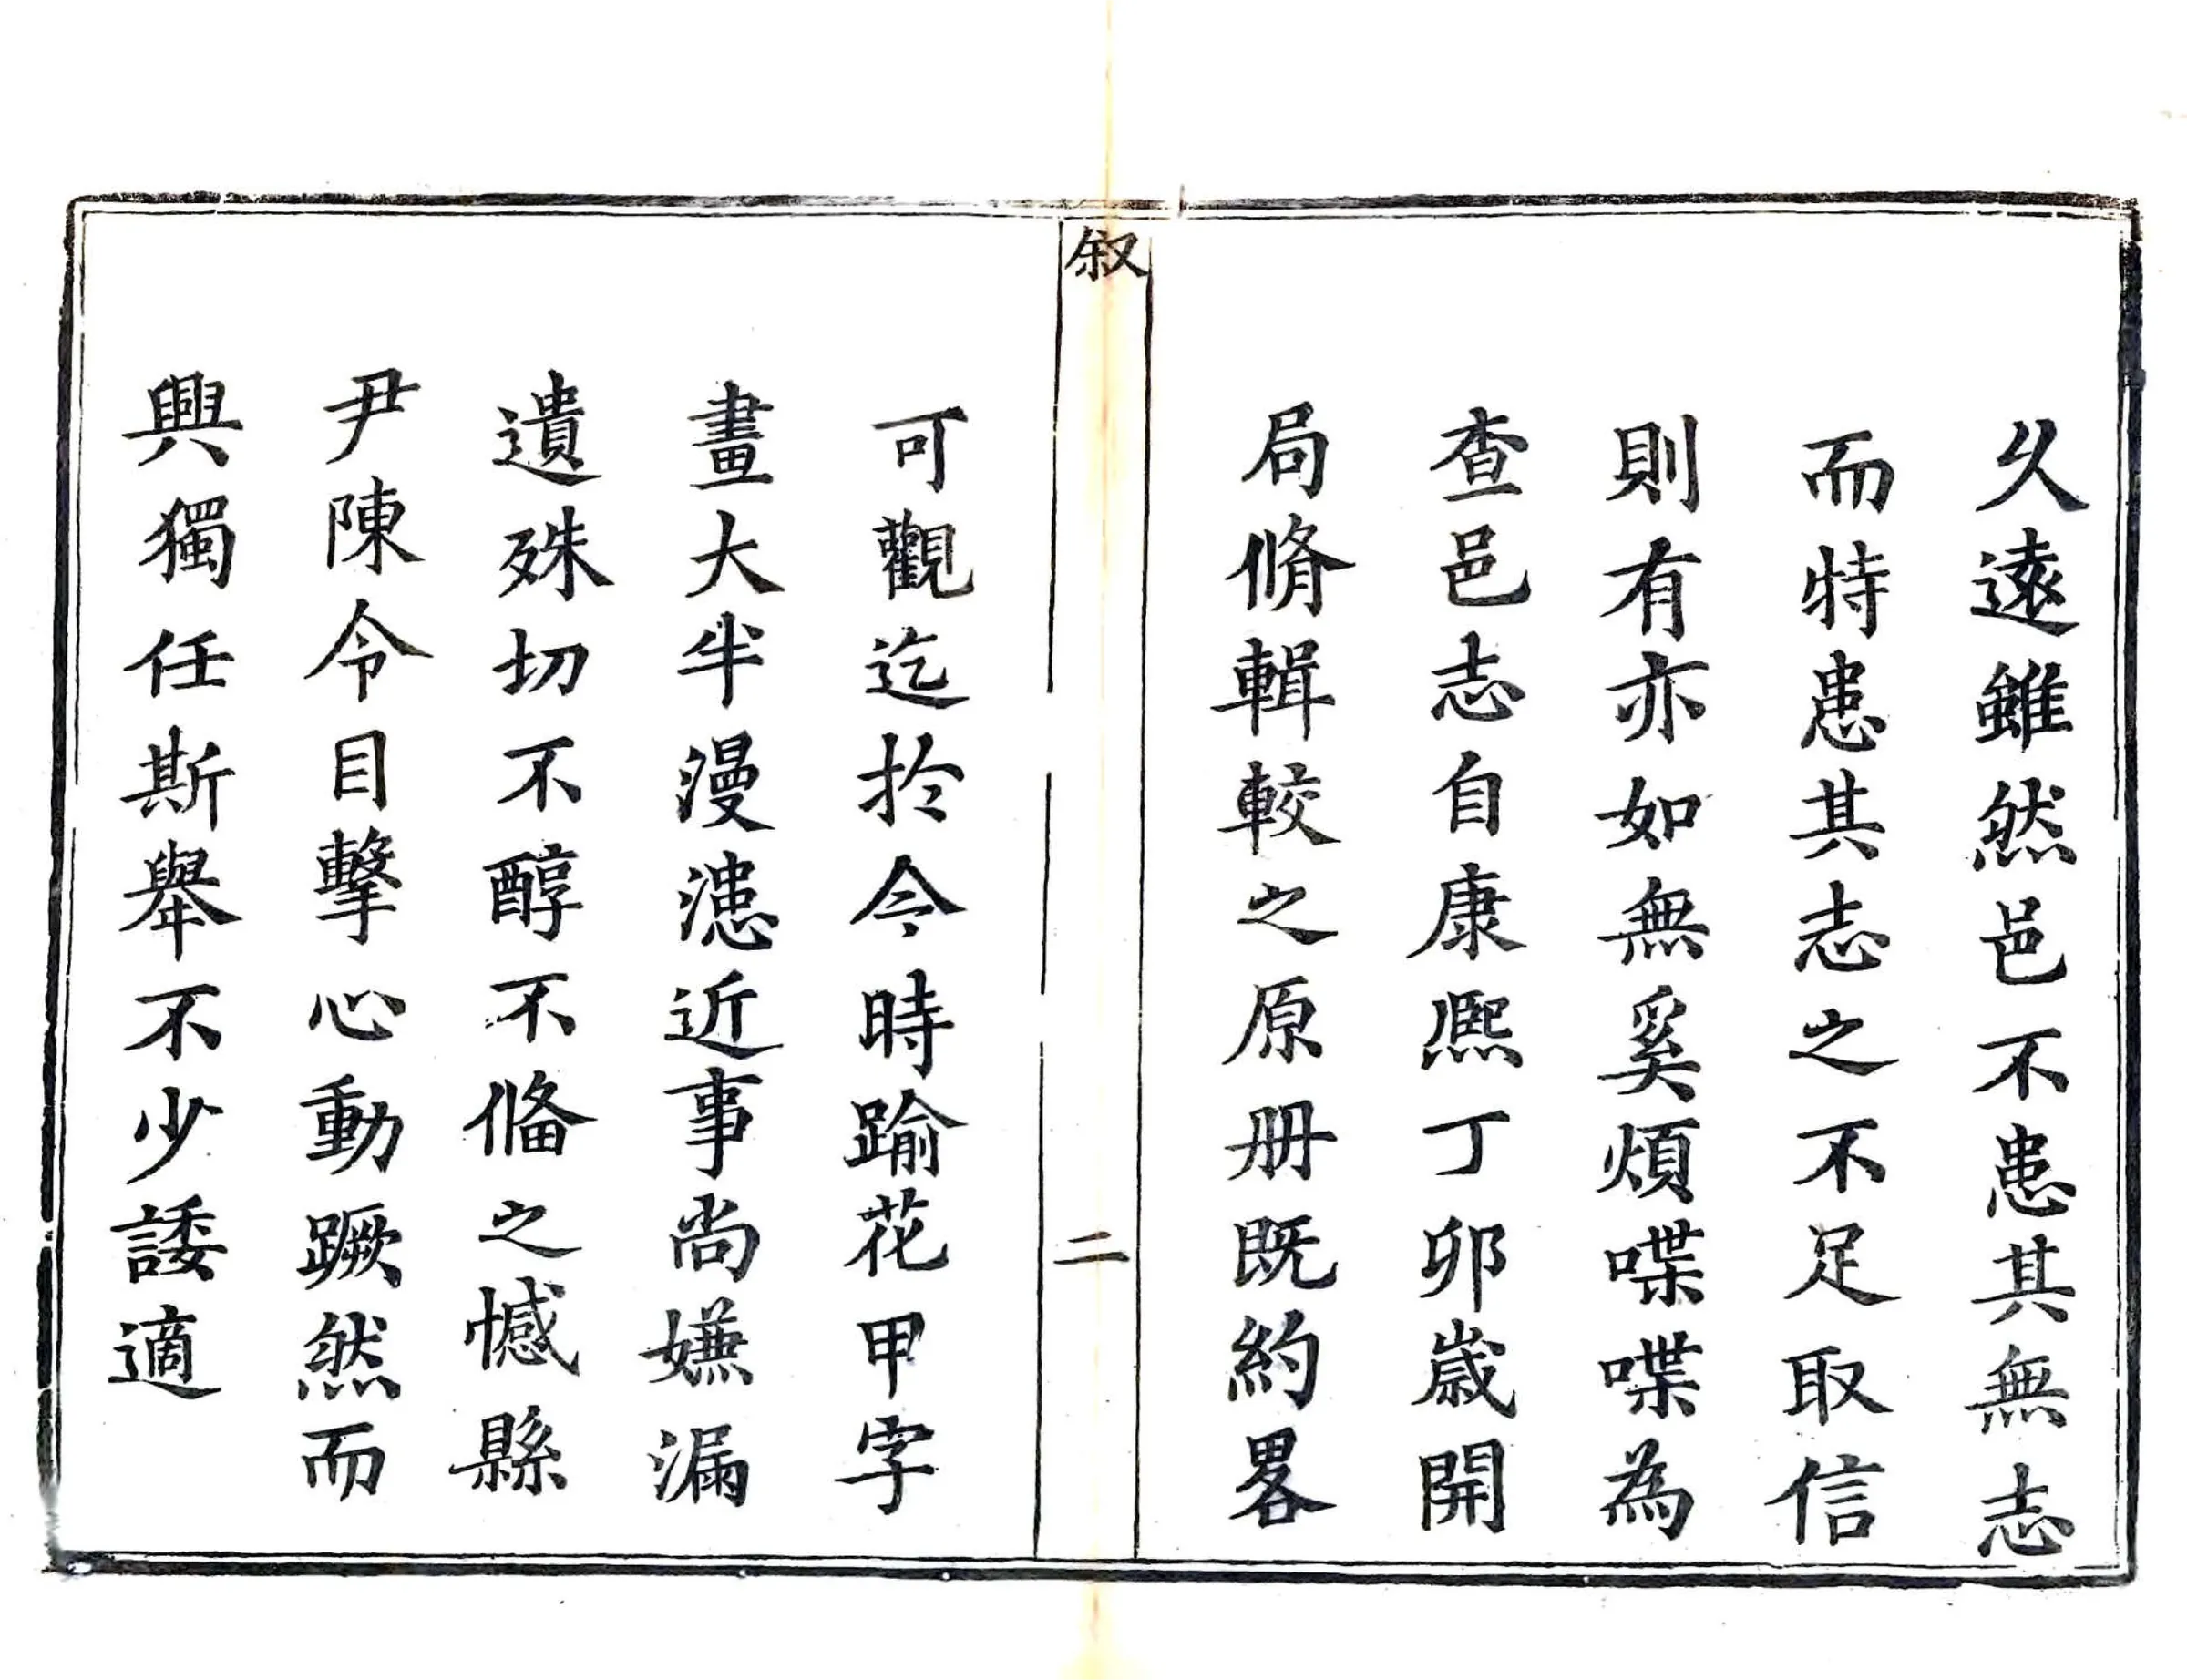 久遠雖然邑不患其無志
而特患其志之不足取信
則有亦如無奚煩喋喋為
查邑志自康熈丁卯歲開
局脩輯較之原册既約畧
叙
二
可觀迄於今時踰花甲字
畫大半漫漶近事尚嫌漏
遺殊切不醇不偹之憾縣
尹陳令目擊心動蹶然而
興獨任斯舉不少諉適